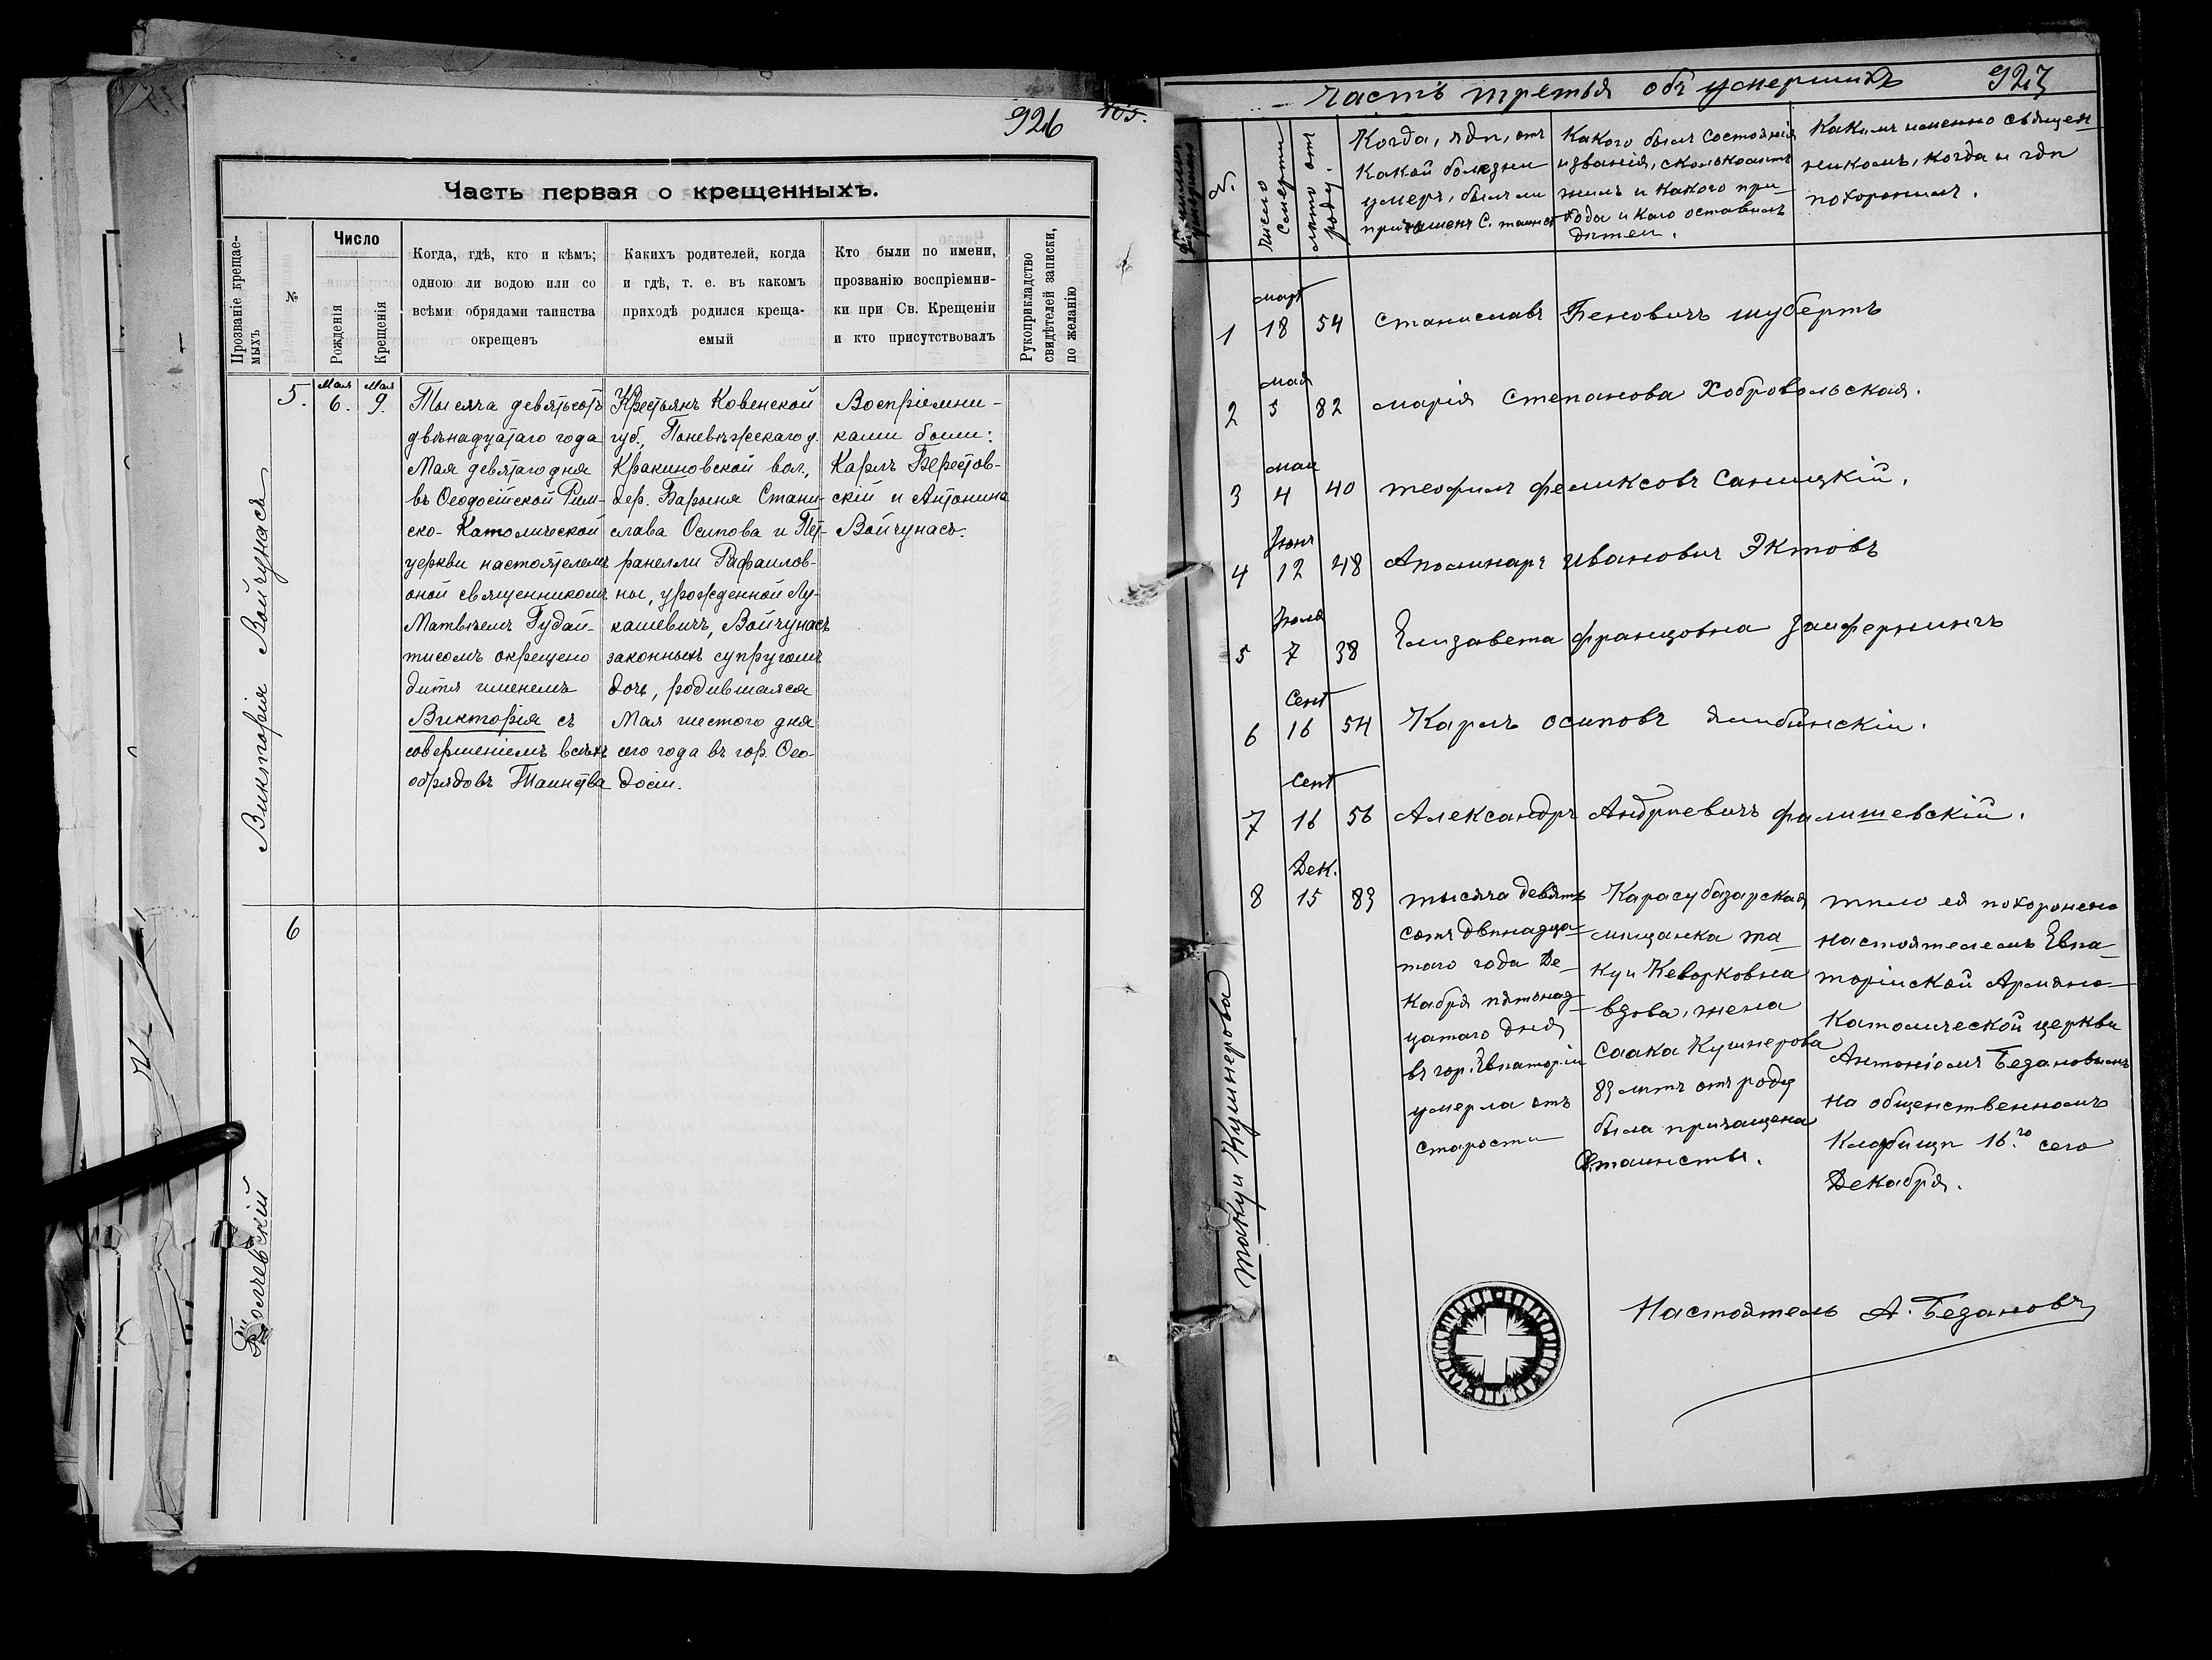 926
105.
Часть первая о крещенныхъ.
Прозваніе крещае-
мыхъ
№
Число
Рожденія
Крещенія
Когда, гдѣ, кто и кѣмъ;
одною ли водою или со
всѣми обрядами таинства
окрещенъ
Какихъ родителей, когда
и гдѣ, т. е. въ какомъ
приходѣ родился креща-
емый
Кто были по имени,
прозванію воспріемни-
ки при Св. Крещеніи
и кто присутствовалъ
Рукоприкладство
свидѣтелей записки,
по желанію
Викторія Войчунася
5.
Мая
6.
Мая
9.
Тысяча девятьсотъ
двѣнадцатаго года
Мая девятаго дня
въ Ѳеодосійской Рим-
ско-Католической
церкви настоятелемъ
оной священникомъ
Матвѣемъ Гудай-
тисомъ окрещено
дитя именемъ
Викторія съ
совершеніемъ всѣхъ
обрядовъ Таинства
Крестьянъ Ковенской
губ., Поневѣжскаго у.
Кракиновской вол.,
дер. Барыня Стани-
слава Осипова и Пет-
ранелли Рафаилов-
ны, урожденной Лу-
кашевичъ, Войчунасъ
законныхъ супруговъ
дочь, родившаяся
Мая шестого дня
сего года въ гор. Ѳео-
досіи.
Воспріемни-
ками были:
Карлъ Берестов-
скій и Антонина
Войчунасъ.
6
927
Часть третья объ умершихъ
№
Число
смерти
лѣто отъ
роду.
Когда, гдѣ, отъ
какой болезни
умеръ, былъ ли
причашенъ С. таинст
Какого былъ состоянія
и званія, сколько лѣтъ
жилъ и какого при-
хода и кого оставилъ
дѣтеи.
Какимъ именно священ
никомъ, когда и гдѣ
похоронилъ.
1
март
18
54
Станиславъ Беновичъ Шубертъ
2
мая
5
82
Марія Степанова Хобровольская.
3
мая
4
40
Теофилъ Феликсовъ Саницкій.
4
Іюня
12
48
Аполинаръ Ивановичъ Эктовъ
5
Іюля
7
38
Елизавета Францовна Заифернингъ
6
Сент
16
54
Карлъ Осиповъ
7
Сент
16
56
Александръ Андрѣевичъ Филишевскій.
Такуи Кушнерова
8
Дек.
15
83
тысяча девять
сотъ двѣнадца-
таго года Де-
кабря пятьнад-
цатаго дня
въ гор. Евпаторіи
умерла отъ
старости
Карасубазарская
мѣщанка та-
куи Кеворковна
вдова, жена
Саака Кушнерова
83 лѣтъ отъ роду
была причащена
С. таинствъ.
тѣло ея похоронено
настоятелемъ Евпа-
торійской Армяно-
Католической церкви
Антоніемъ Бедановымъ
на общественномъ
Кладбищѣ 16.го сего
Декабря.
Настоятель А. Бедановъ